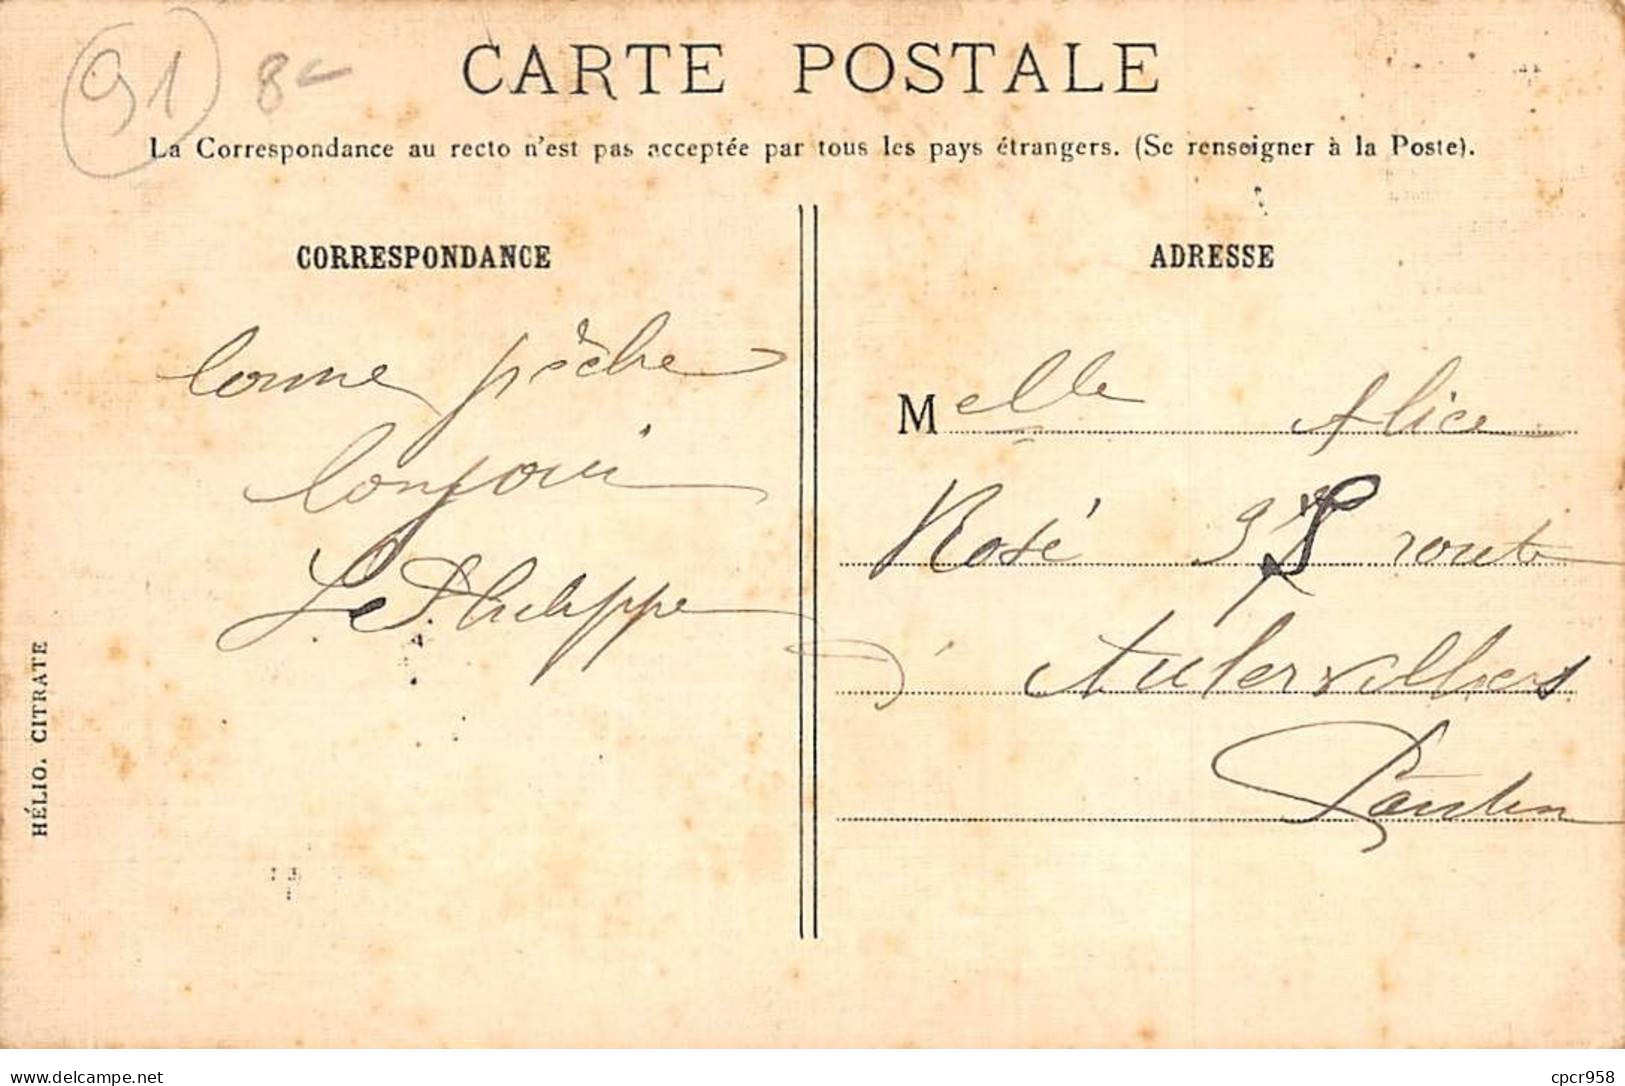 91 8
CARTE POSTALE
La Correspondance au recto n'est pas acceptée par tous les pays étrangers. (Se renseigner à la Poste).
CORRESPONDANCE
bonne pêche
bonjour
Philippe
ADRESSE
Melle Alice
Rosé route
d' Aubervilliers
Pantin
HÉLIO. CITRATE
delcampe.net
cpcr958